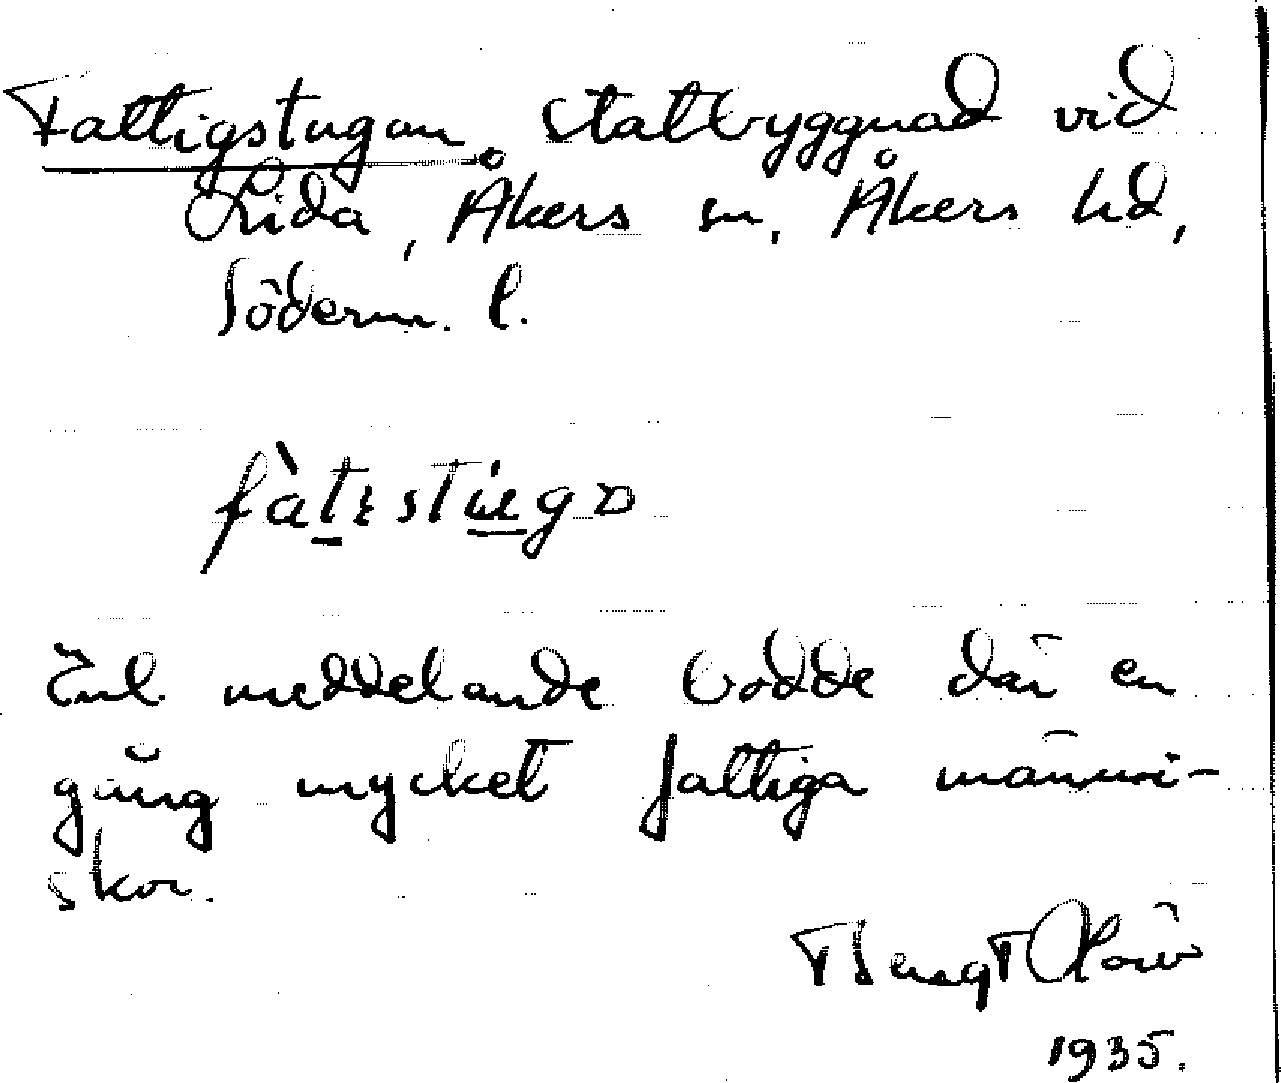 Fattigstugan, statbyggnad vid
Lida, Åkers sn, Åkers hd,
Söderm. l.
fàtɩstʉgɷ
Enl. meddelande bodde där en
gång mycket fattiga männi-
skor.
Bengt
1935.